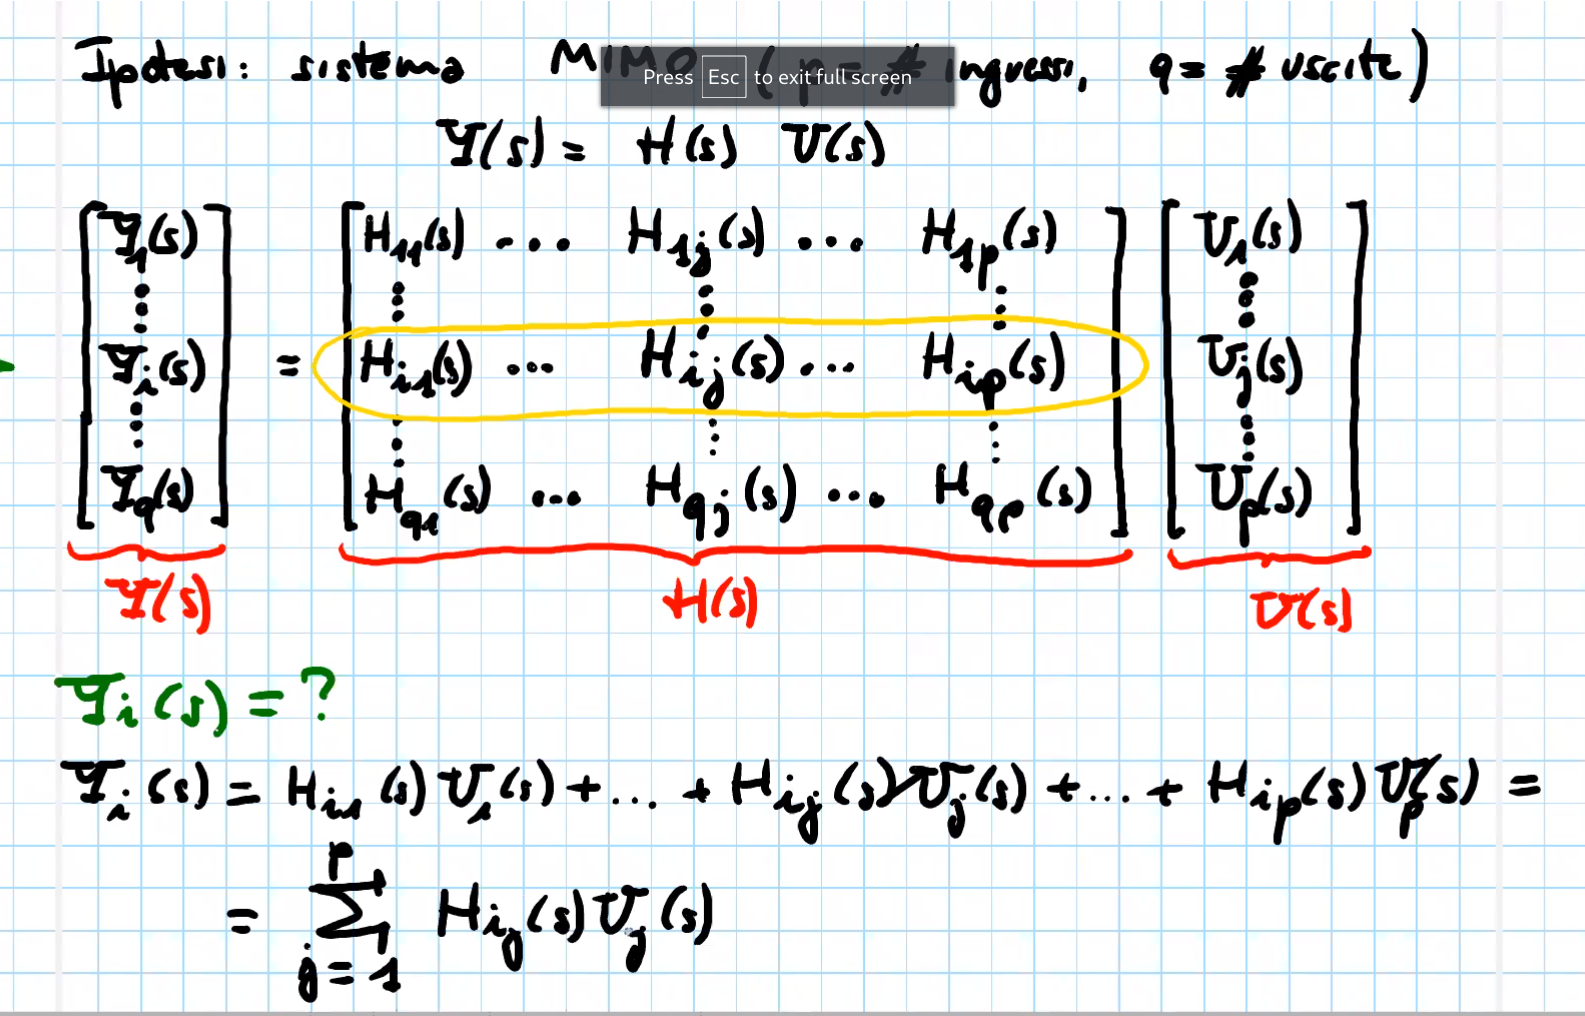 Ipotesi: sistema MIMO (p = # ingressi, q = # uscite)
Press Esc to exit full screen
Y(s) = H(s) U(s)
Y₁(s) H₁₁(s) ... H₁ⱼ(s) ... H₁ₚ(s) U₁(s)
Yᵢ(s) = Hᵢ₁(s) ... Hᵢⱼ(s) ... Hᵢₚ(s) Uⱼ(s)
Y_q(s) H_q1(s) ... H_qj(s) ... H_qp(s) U_p(s)
Y(s) H(s) U(s)
Yᵢ(s) = ?
Yᵢ(s) = Hᵢ₁(s) U₁(s) + ... + Hᵢⱼ(s) Uⱼ(s) + ... + Hᵢₚ(s) Uₚ(s) =
= ∑_{j=1}^{p} Hᵢⱼ(s) Uⱼ(s)